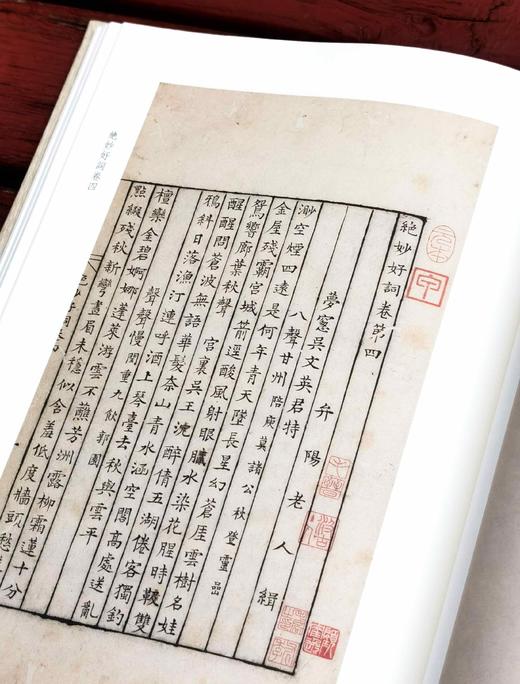 絶妙好詞卷四
絶妙好詞卷第四
弁陽老人緝
夢窻吳文英君特
八聲甘州陪庾幕諸公秋登靈嵒
渺空煙四遠是何年青天墜長星幻蒼厓雲樹名娃
金屋殘霸宮城箭逕酸風射眼膩水染花腥時靸雙
鴛響廊葉秋聲 宮裏吳王沈醉倩五湖倦客獨釣
醒醒問蒼波無語華髮奈山青水涵空閣高處送亂
鴉斜日落漁汀連呼酒上琴臺去秋與雲平
聲聲慢閏重九飲郭園
檀欒金碧婀娜蓬萊游雲不蘸芳洲露柳霜蓮十分
點綴殘秋新彎畫眉未穩似含羞低度牆頭愁